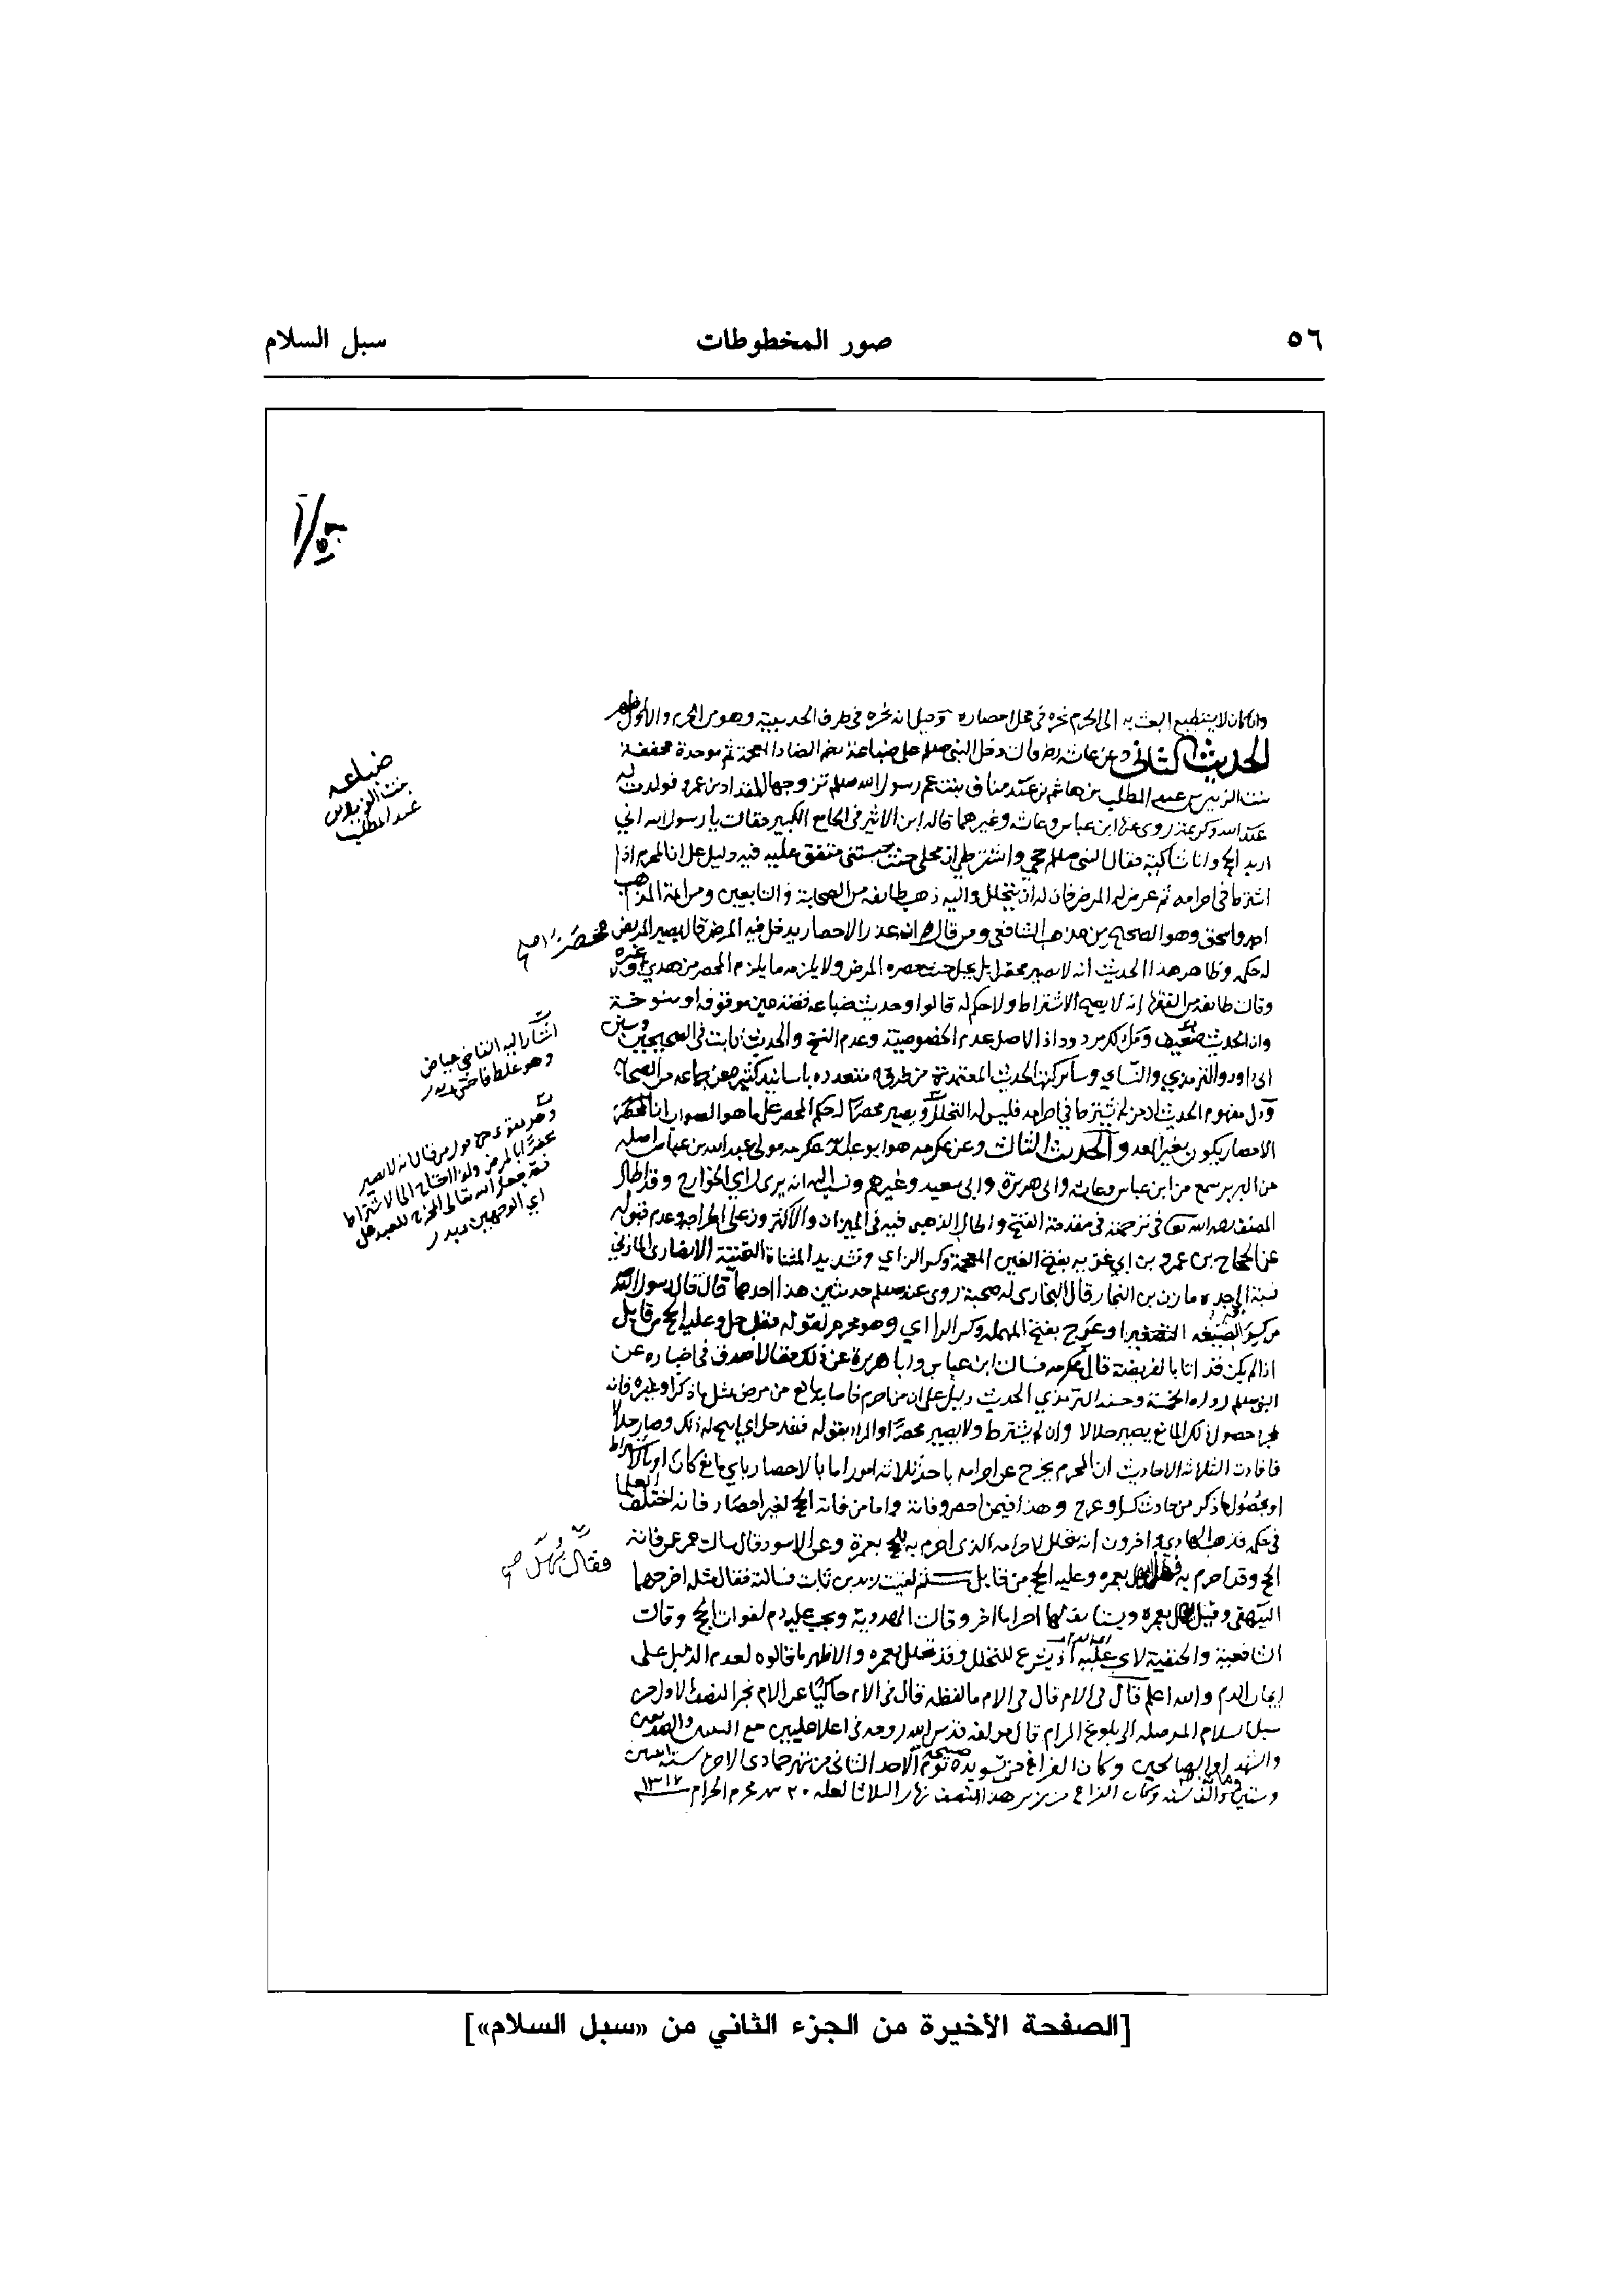 ٥٦
صور المخطوطات
سبل السلام
وان كان لا يستطيع البعث به الى الحرم نحره في محل احصاره وقيل انه نحره في طرف الحديبية وهو من الحرم والاول اظهر
الحديث الثاني وعن عائشه رضـ قالت دخل النبي صلعم على ضباعة بضم الضاد المعجمة ثم موحدة مخففة
بنت الزبير بن عبد المطلب بن هاشم بن عبد مناف بنت عم رسول الله صلعم تزوجها المقداد بن عمرو فولدت له
عبد الله وكريمة روى عنها ابن عباس وعائشه وغيرهما قاله ابن الاثير في الجامع الكبير فقالت يا رسول الله اني
اريد الحج وانا شاكية فقال النبي صلعم حجي واشترطي ان محلي حيث حبستني متفق عليه فيه دليل على ان المحرم اذا
اشترط في احرامه ثم عرض له المرض فان له ان يتحلل واليه ذهب طائفه من الصحابة والتابعين ومن ائمة المذاهب
احمد واسحق وهو الصحيح من مذهب الشافعي ومن قال انه عذر الاحصار يدخل فيه المرض قال يصير المريض محصرا
له حكمه وظاهر هذا الحديث انه لا يصير محصرا بل يحل حيث حصره المرض ولا يلزمه ما يلزم المحصر من هدي ولا غيره
وقالت طائفه من الفقها انه لا يصح الاشتراط ولا حكم له قالوا وحديث ضباعه قصة عين موقوفه او منسوخة
وان الحديث ضعيف وكل ذلك مردود اذ الاصل عدم الخصوصية وعدم النسخ والحديث ثابت في الصحيحين وسنن
ابي داود والترمذي والنسائي وسائر كتب الحديث المعتمدة من طرق متعدده باسانيد كثيره عن جماعه من الصحابة
ودل مفهوم الحديث ان من لم يشترط في احرامه فليس له التحلل ويصير محصرا له حكم المحصر على ما هو الصواب ان
الاحصار يكون بغير العدو الحديث الثالث وعن عكرمه هو ابو عبد الله عكرمه مولى عبد الله بن عباس اصله
من البربر سمع من ابن عباس وعائشه وابي هريرة وابي سعيد وغيرهم ونسب اليه انه يرى راي الخوارج وقد اطال
المصنف رحمه الله تعالى في ترجمته في مقدمة الفتح واطال الذهبي فيه في الميزان والاكثرون على اطراحه وعدم قبوله
عن الحجاج بن عمرو بن ابي غزيه بفتح الغين المعجمة وكسر الزاي وتشديد المثناة التحتية الانصاري المازني
نسبة الى جده مازن بن النجار قال البخاري له صحبة روى عنه صلعم حديثين هذا احدهما قال قال رسول الله
من كسر او عرج بفتح المهمله وكسر الرا اي وهو محرم لقوله فقد حل وعليه الحج من قابل
اذا لم يكن قد اتا بالفريضة قال عكرمه فسالت ابن عباس وابا هريرة عن ذلك فقالا صدق في اخباره عن
النبي صلعم رواه الخمسة وحسنه الترمذي الحديث دليل على ان من احرم فاصابه مانع من مرض مثل ما ذكر او غيره فانه
بمجرد حصول ذلك المانع يصير حلالا وان لم يشترط ولا يصير محصرا والمراد بقوله فقد حل اي ابيح له ذلك وصار حلالا
فافادت الثلاثه الاحاديث ان المحرم يخرج عن احرامه باحد ثلاثه امور اما بالاحصار باي مانع كان او بالاشتراط
او بحصول ما ذكر من حادث كسر او عرج وهذا فيمن احصر وفاته واما من فاته الحج لغير احصار فانه اختلف العلما
في حكمه فذهب الهادي واخرون انه يتحلل لاحرامه الذي احرم به للحج بعمرة وعن الاسود قال سالت عمر عمن فاته
الحج وقد احرم به فقال يهل بعمره وعليه الحج من قابل ثم لقيت زيد بن ثابت فسالته فقال مثله اخرجهما
البيهقي وقيل يهل بعمره ويستانف لها احراما اخر وقالت الهدوية ويجب عليه دم لفوات الحج وقالت
الشافعية والحنفية لا يجب عليه اذ يشرع للتحلل وقد تحلل بعمره والاظهر ما قالوه لعدم الدليل على
ايجاب الدم والله اعلم قال في الام قال في الام ما لفظه قال في الام حاكيا عن الام نجز النصف الاول من
سبل السلام الموصله الى بلوغ المرام قال مولفه قدس الله روحه في اعلا عليين مع النبيين والصديقين
والشهداء والصالحين وكان الفراغ من تسويده صبح يوم الاحد الثاني من شهر جمادى الاخرة سنة اثنين
وستين ومائة والف سنة وكان الفراغ من زبر هذا النصف نهار الثلاثا لعله ٢٠ شهر محرم الحرام ١٣١٧
ضباعه
بنت الزبير بن
عبد المطلب
اصل
اشار اليه القاضي عياض
وهو غلط فاحش بدر
محصرا بالمرض ولذا احتاج الى الاشتراط
اي الوجهين بدر
فقال يهل
[الصفحة الأخيرة من الجزء الثاني من «سبل السلام»]